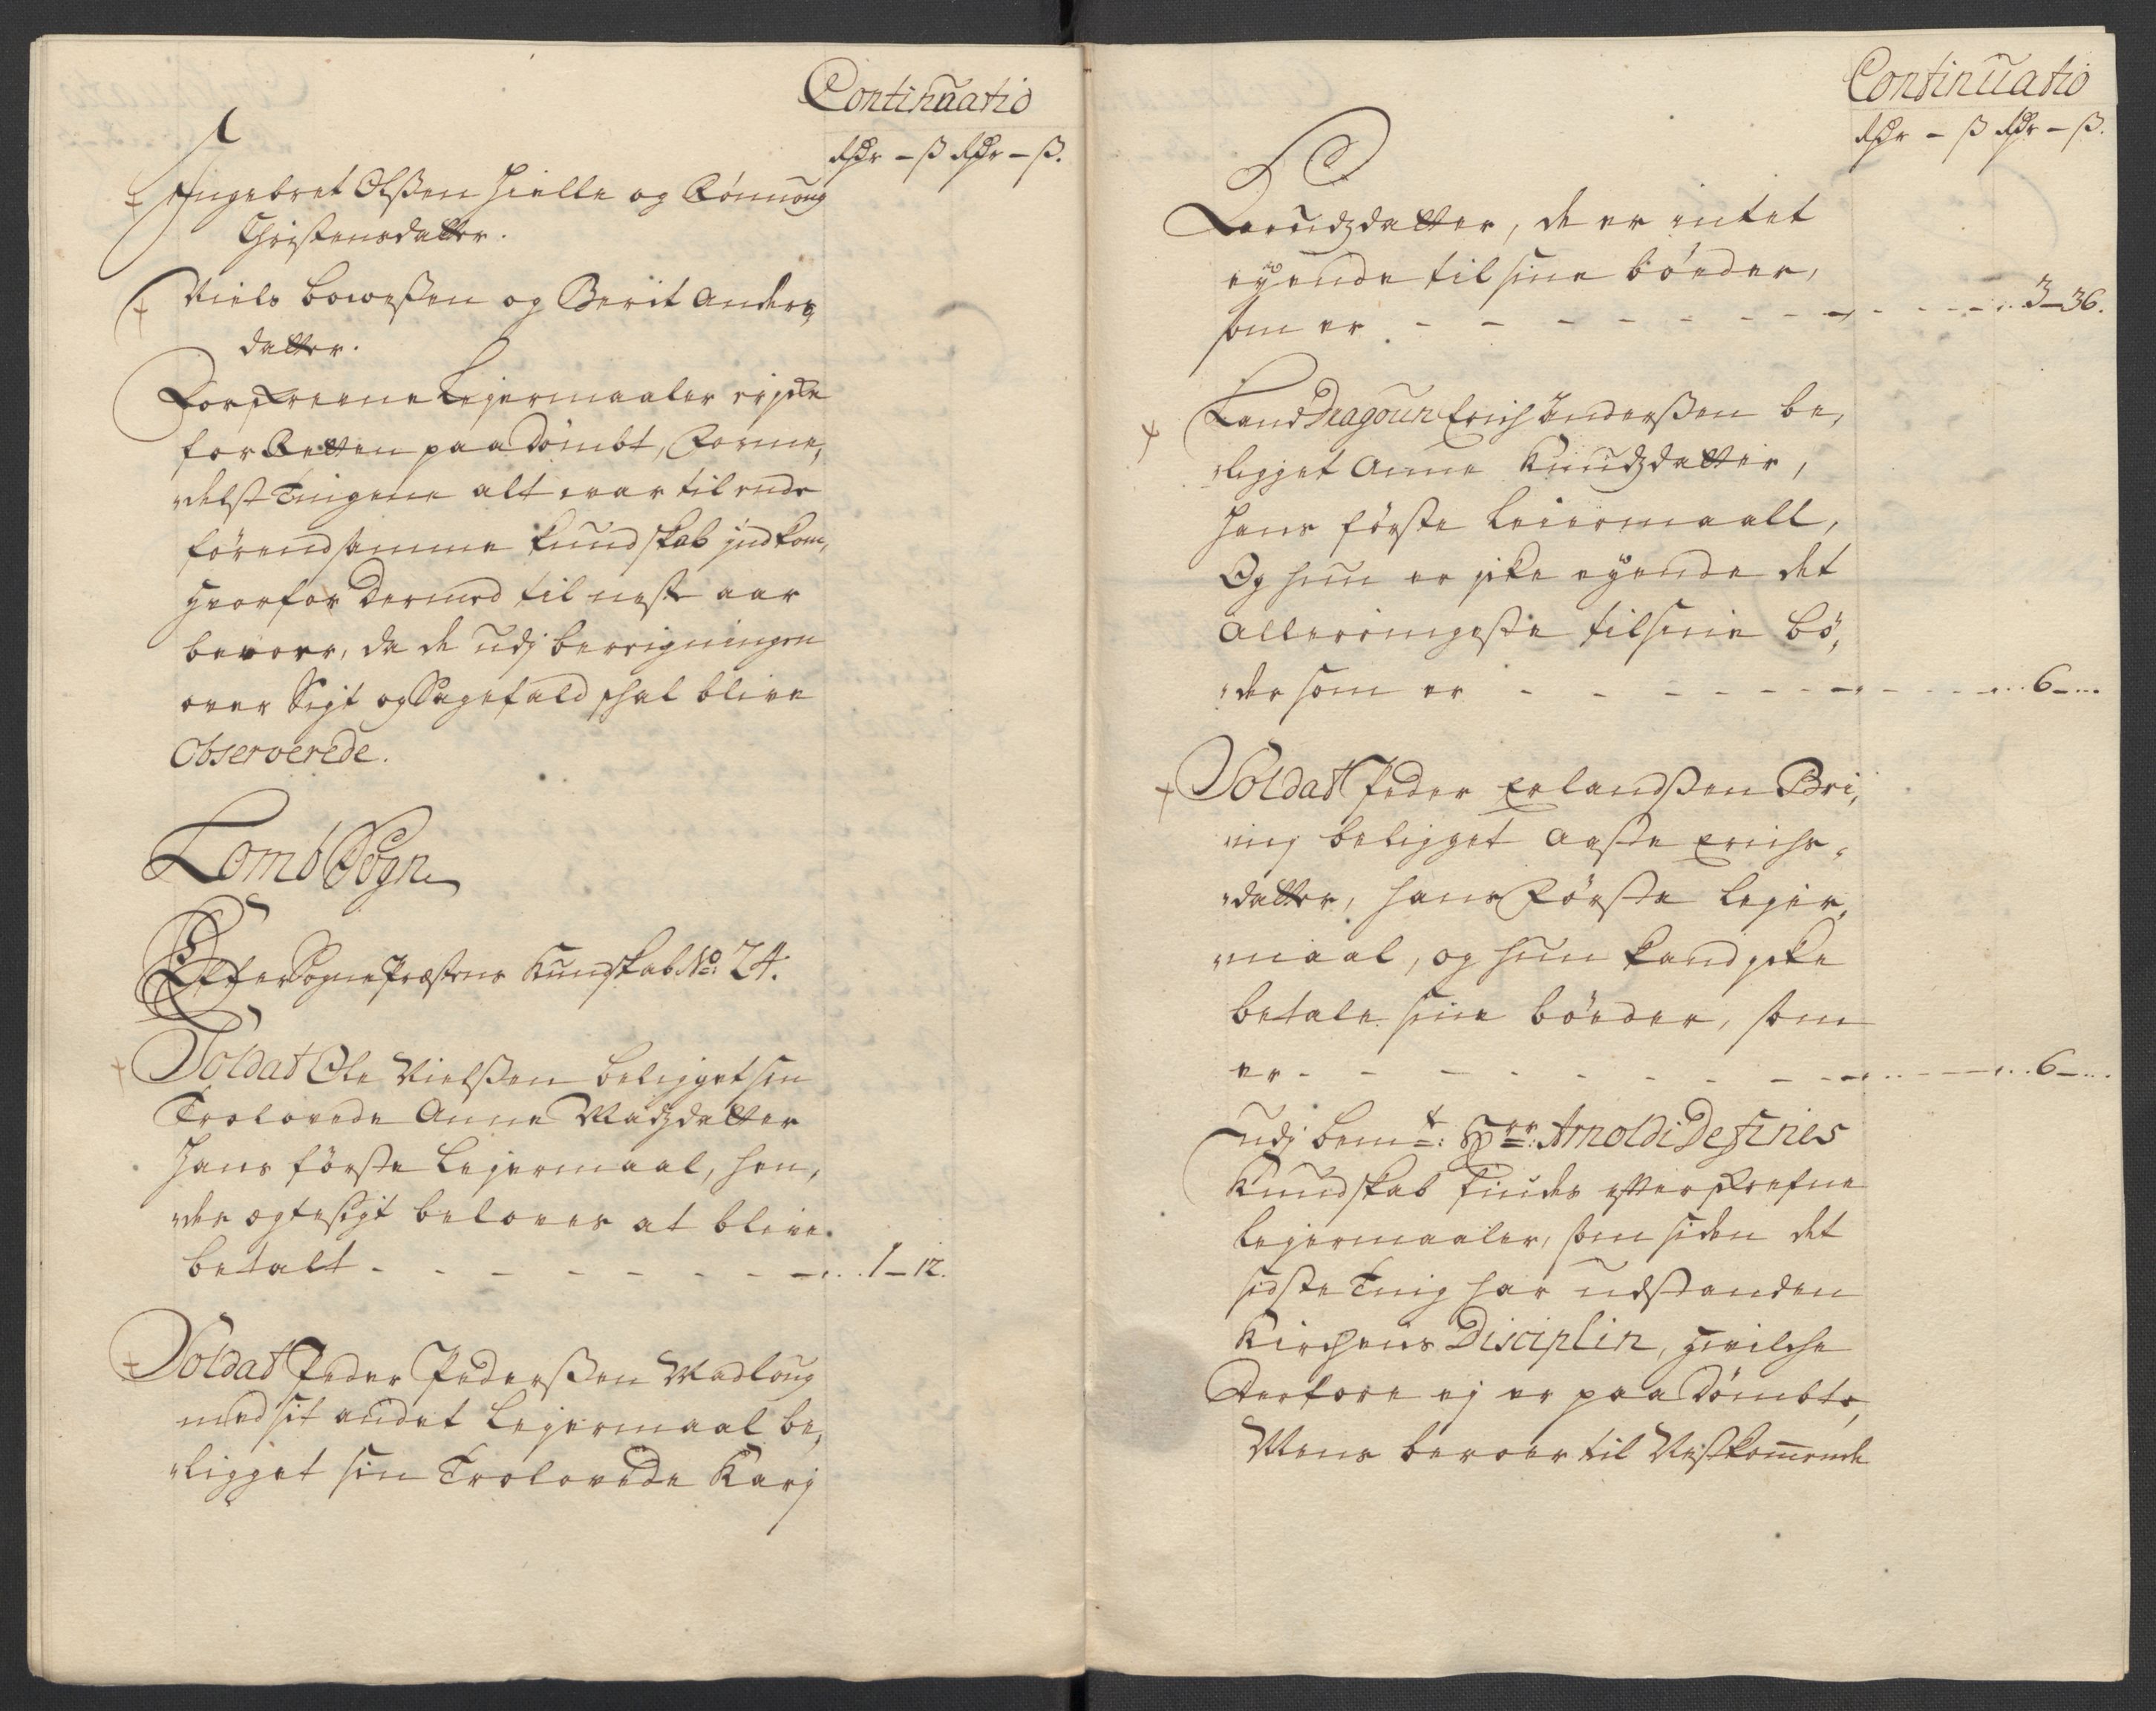 Continuatio
Rdr – ß Rdr – ß.
Ingebret Olßen Hielle og Rönnoug
Christensdatter.
Niels Bowesßen og Berit Anders,
datter.
Forskrevne Lejermaaler er icke
for Retten paadömbt, Forme,
delst Tingene alt var til ende
förend samme kundskab indkom,
hvorfor dermed til neste aar
beroer, da de udj beregningen
over Sigt og Sagefald skal blive
Observerede.
Lomb Sogn
Efter Sogne Præstens Kundskab No: 24.
Soldat Ole Nielßen beligget sin
Trolovede Anne Madzdatter
Hans förste Lejermaal, hen,
des ægtesigt beloves at blive
betalt - - - - - - - - 1 – 12.
Soldat Peder Pederßen Madloug
med sit andet Lejermaal be,
ligget sin Trolovede Karj
Continuatio
Rdr – ß Rdr – ß.
Knudzdatter, de er intet
eyende til sine böeder,
som er - - - - - - - - 3 – 36.
Land Dragoun Erich Anderßen be,
ligget Anne Knudzdatter,
Hans förste Leiermaall,
Og hun er icke eyende det
allerringeste til sine bö,
der som er - - - - - - - - 6 – ..
Soldat Peder Erlandßen Bri,
nij beligget Aaste Erichs,
datter, hans Förste Lejer,
maal, og hun kand icke
betale sine böeder, som
er - - - - - - - - 6 – ..
Udj bemt: Hrr: Arnoldi Definies
Kundskab findes efterskrefne
Lejermaaler, som siden det
sidste Ting har udstanden
Kirchens Disciplin, hvilche
derfore ej er paa dömbte,
Mens beroer til Nestkommende